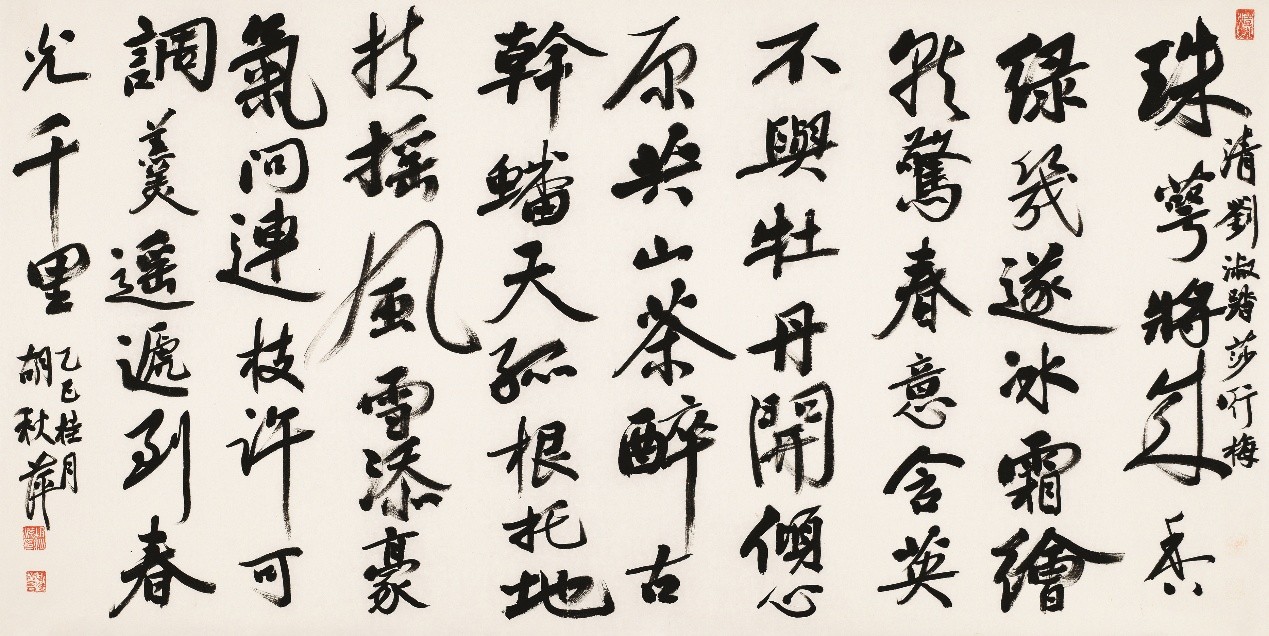 清劉淑踏莎行梅
珠萼將
綠幾遂冰霜繪
就驚春意含英
不與牡丹開傾心
原共山茶醉古
幹蟠天孤根托地
扶搖風雪添豪
氣問連枝許可
調羹遙遞到春
光千里
乙巳桂月
胡秋萍